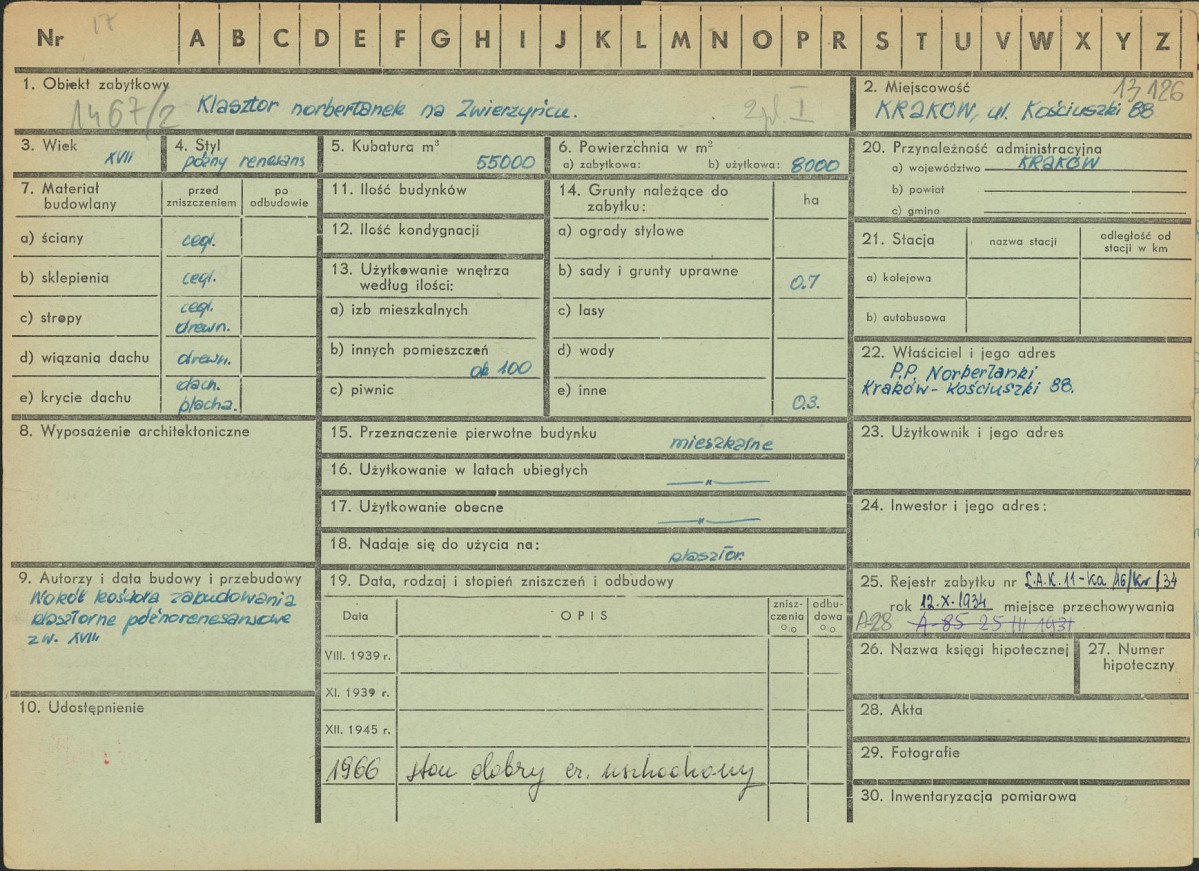 Nr A B C D E F G H I J K L M N O P R S T U V W X Y Z
1. Obiekt zabytkowy
1467/2 Klasztor norbertanek na Zwierzyńcu.
2. Miejscowość 13126
KRAKÓW, ul. Kościuszki 88
3. Wiek
XVII
4. Styl
późny renesans
5. Kubatura m³
55000
6. Powierzchnia w m²
a) zabytkowa: b) użytkowa: 8000
20. Przynależność administracyjna
a) województwo KRAKÓW
b) powiat
c) gmina
7. Materiał budowlany
przed zniszczeniem
po odbudowie
a) ściany cegł.
b) sklepienia cegł.
c) stropy cegł. drewn.
d) wiązania dachu drewn.
e) krycie dachu dach. blacha.
11. Ilość budynków
12. Ilość kondygnacji
13. Użytkowanie wnętrza
według ilości:
a) izb mieszkalnych
b) innych pomieszczeń
ok 100
c) piwnic
14. Grunty należące do
zabytku:
ha
a) ogrody stylowe
b) sady i grunty uprawne 0.7
c) lasy
d) wody
e) inne 0.3.
21. Stacja
nazwa stacji
odległość od
stacji w km
a) kolejowa
b) autobusowa
22. Właściciel i jego adres
P.P. Norbertanki
Kraków - Kościuszki 88.
8. Wyposażenie architektoniczne
15. Przeznaczenie pierwotne budynku mieszkalne
16. Użytkowanie w latach ubiegłych —"—
17. Użytkowanie obecne —"—
18. Nadaje się do użycia na: klasztor.
23. Użytkownik i jego adres
24. Inwestor i jego adres:
9. Autorzy i data budowy i przebudowy
Wokół kościoła zabudowania
klasztorne późnorenesansowe
z w. XVII.
19. Data, rodzaj i stopień zniszczeń i odbudowy
Data
OPIS
znisz-
czenia
%
odbu-
dowa
%
VIII. 1939 r.
XI. 1939 r.
XII. 1945 r.
1966 stan dobry
25. Rejestr zabytku nr L.A.K. 11-Ka/16/Kr/34
rok 12.X.1934 miejsce przechowywania
A-28 A-85 25 III 1931
26. Nazwa księgi hipotecznej
27. Numer
hipoteczny
10. Udostępnienie
28. Akta
29. Fotografie
30. Inwentaryzacja pomiarowa